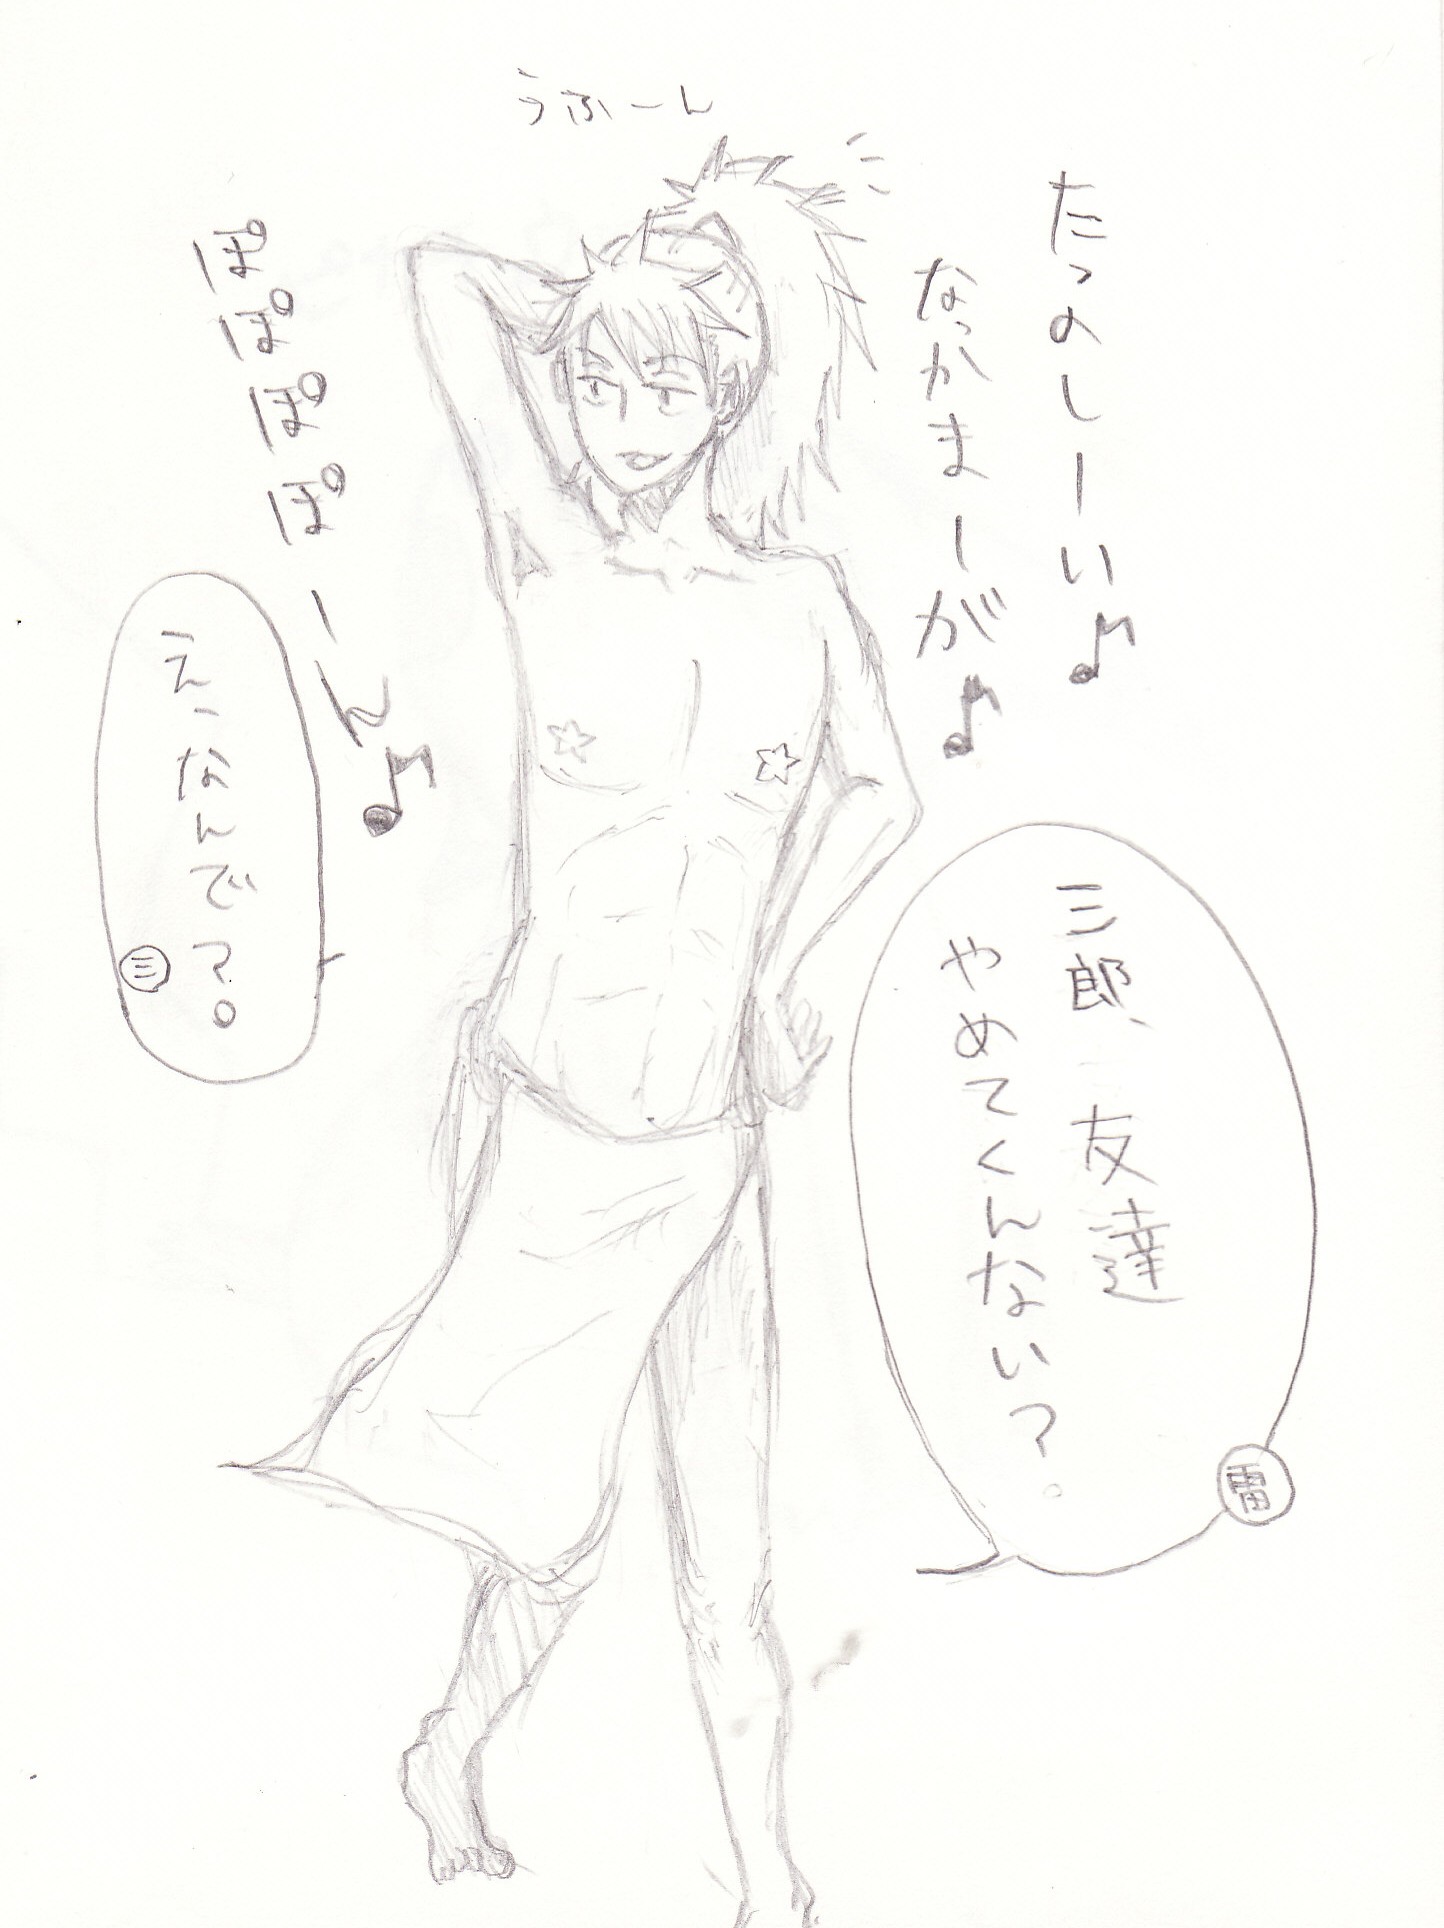 うふーん
たっのしーい♪
なっかまーが♪
ぽぽぽぽーん♪
三郎、友達
やめてくんない?。
雷
え、なんで?。
三